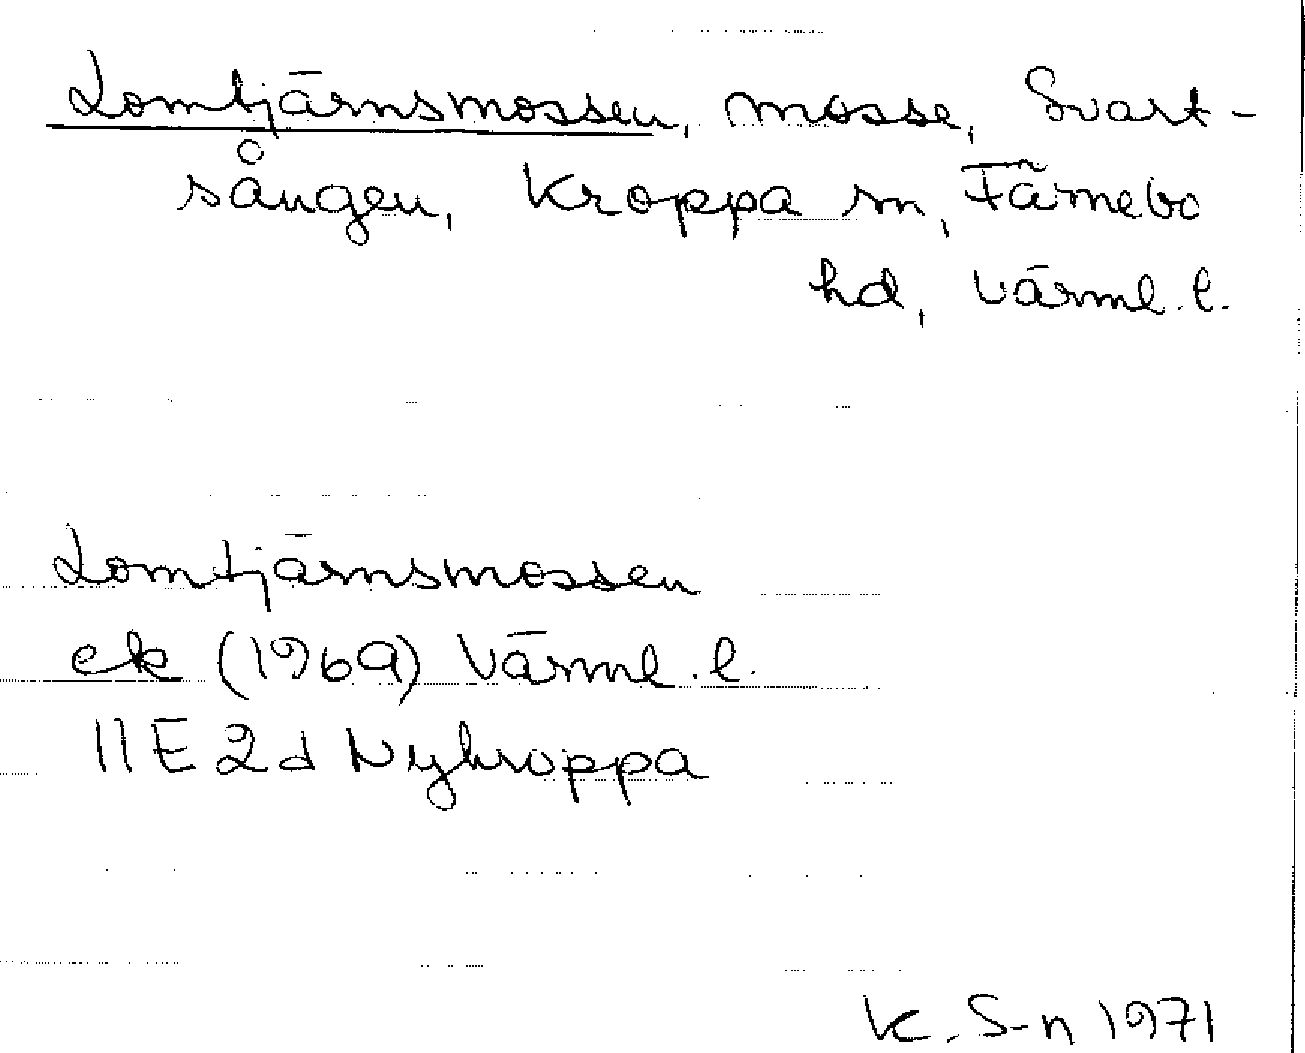 Lomtjärnsmossen, mosse, Svart-
sången, Kroppa sn, Färnebo
hd, Värml. l.
Lomtjärnsmossen
ek (1969) Värml. l.
11E 2d Nykroppa
K. S-n 1971